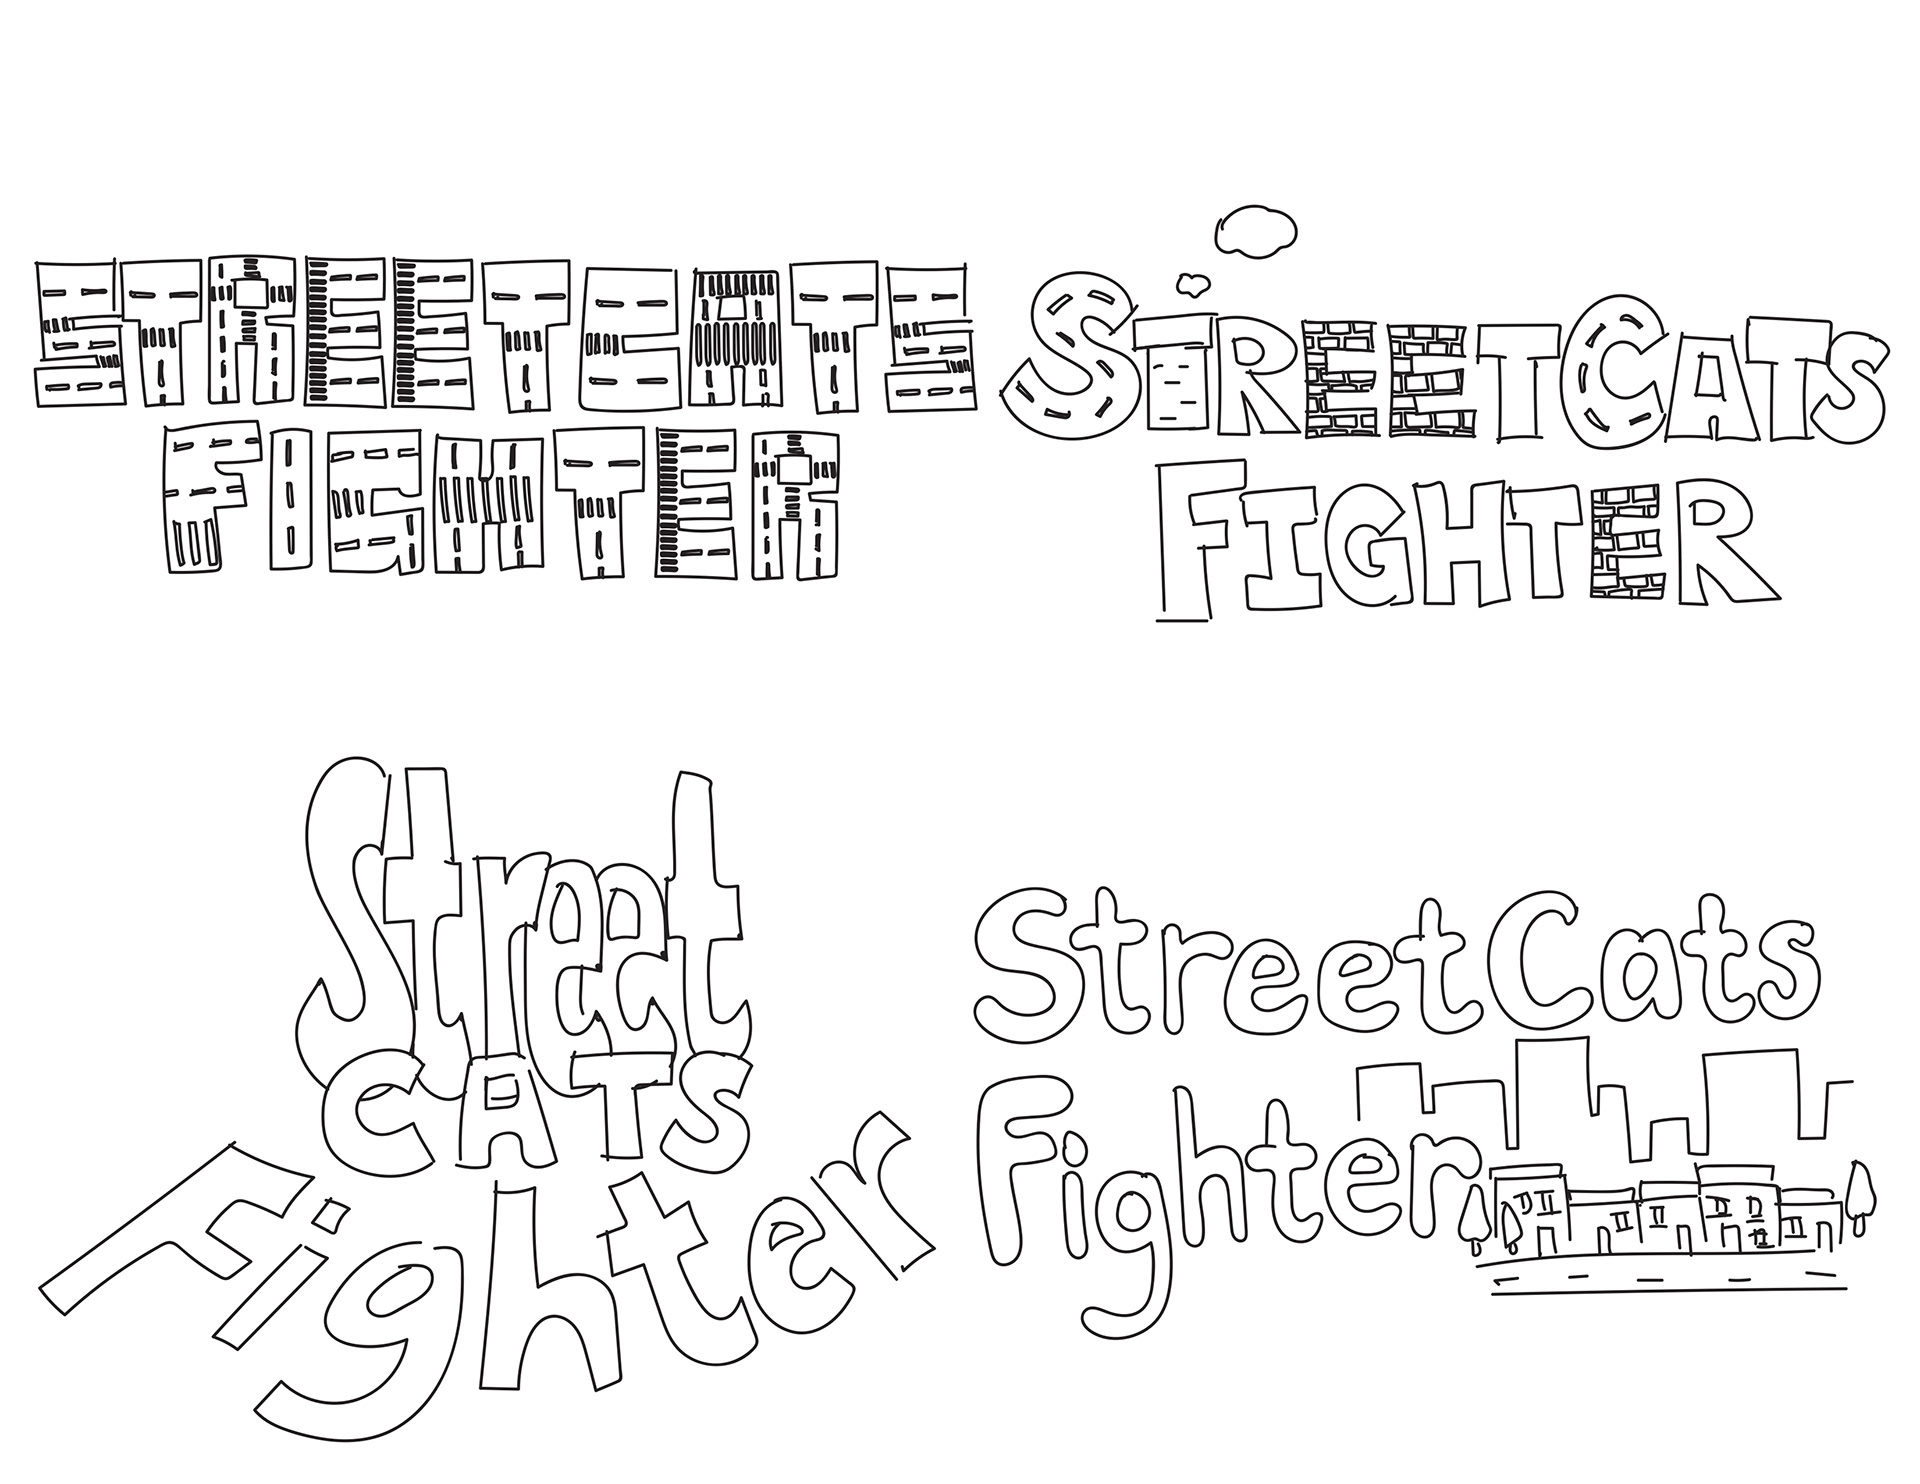 STREETCATS
FIGHTER
STREETCATS
FIGHTER
Street
CATS
Fighter
StreetCats
Fighter